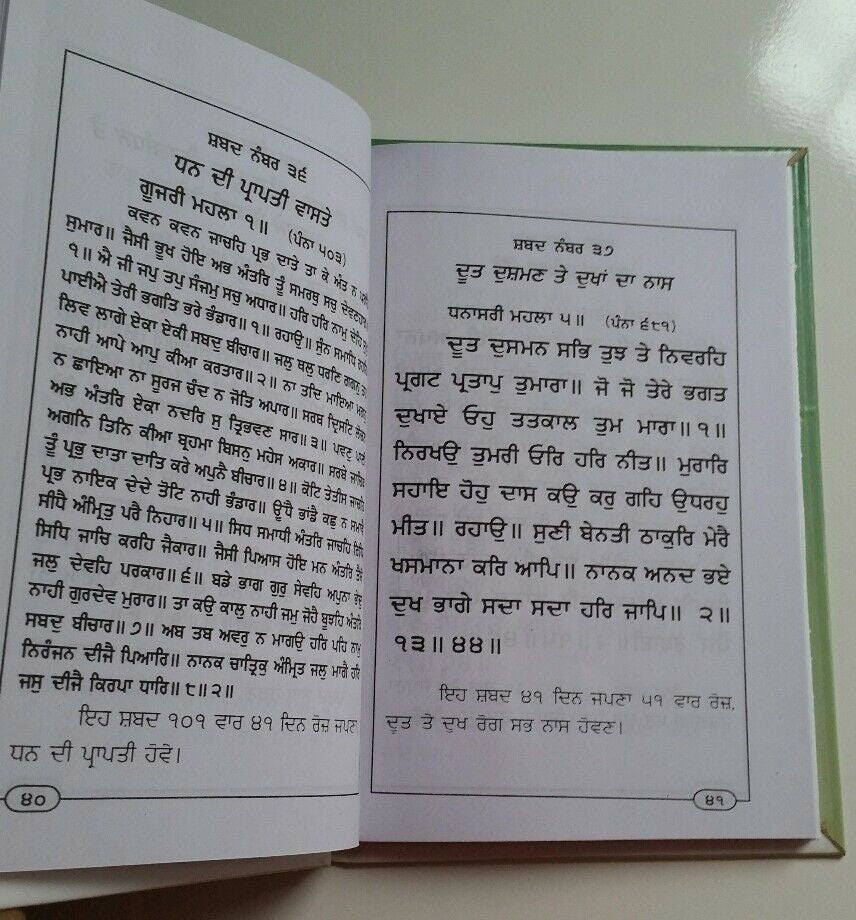 ਸ਼ਬਦ ਨੰਬਰ ੩੬
ਧਨ ਦੀ ਪ੍ਰਾਪਤੀ ਵਾਸਤੇ
ਗੂਜਰੀ ਮਹਲਾ ੧॥ (ਪੰਨਾ ੫੦੩)
ਕਵਨ ਕਵਨ ਜਾਚਹਿ ਪ੍ਰਭ ਦਾਤੇ ਤਾ ਕੇ ਅੰਤ ਨ
ਸੁਮਾਰ॥ ਜੈਸੀ ਭੂਖ ਹੋਇ ਅਭ ਅੰਤਰਿ ਤੂੰ ਸਮਰਥੁ ਸਚੁ
੧॥ ਐ ਜੀ ਜਪੁ ਤਪੁ ਸੰਜਮੁ ਸਚੁ ਅਧਾਰ॥ ਹਰਿ ਹਰਿ ਨਾਮੁ ਦੇਹਿ
ਪਾਈਐ ਤੇਰੀ ਭਗਤਿ ਭਰੇ ਭੰਡਾਰ॥੧॥ ਰਹਾਉ॥ ਸੁੰਨ ਸਮਾਧਿ
ਲਿਵ ਲਾਗੇ ਏਕਾ ਏਕੀ ਸਬਦੁ ਬੀਚਾਰ॥ ਜਲੁ ਥਲੁ ਧਰਣਿ ਗਗਨੁ
ਨਾਹੀ ਆਪੇ ਆਪੁ ਕੀਆ ਕਰਤਾਰ॥੨॥ ਨਾ ਤਦਿ ਮਾਇਆ
ਨ ਛਾਇਆ ਨਾ ਸੂਰਜ ਚੰਦ ਨ ਜੋਤਿ ਅਪਾਰ॥ ਸਰਬ ਦ੍ਰਿਸਟਿ
ਅਭ ਅੰਤਰਿ ਏਕਾ ਨਦਰਿ ਸੁ ਤ੍ਰਿਭਵਣ ਸਾਰ॥੩॥ ਪਵਣੁ
ਅਗਨਿ ਤਿਨਿ ਕੀਆ ਬ੍ਰਹਮਾ ਬਿਸਨੁ ਮਹੇਸ ਅਕਾਰ॥ ਸਰਬੇ
ਤੂੰ ਪ੍ਰਭੁ ਦਾਤਾ ਦਾਤਿ ਕਰੇ ਅਪੁਨੈ ਬੀਚਾਰ॥੪॥ ਕੋਟਿ ਤੇਤੀਸ ਜਾਚਹਿ
ਪ੍ਰਭ ਨਾਇਕ ਦੇਦੇ ਤੋਟਿ ਨਾਹੀ ਭੰਡਾਰ॥ ਊਂਧੈ ਭਾਂਡੈ ਕਛੁ ਨ
ਸੀਧੈ ਅੰਮ੍ਰਿਤੁ ਪਰੈ ਨਿਹਾਰ॥੫॥ ਸਿਧ ਸਮਾਧੀ ਅੰਤਰਿ ਜਾਚਹਿ
ਸਿਧਿ ਜਾਚਿ ਕਰਹਿ ਜੈਕਾਰ॥ ਜੈਸੀ ਪਿਆਸ ਹੋਇ ਮਨ ਅੰਤਰਿ
ਜਲੁ ਦੇਵਹਿ ਪਰਕਾਰ॥੬॥ ਬਡੇ ਭਾਗ ਗੁਰੁ ਸੇਵਹਿ ਅਪੁਨਾ
ਨਾਹੀ ਗੁਰਦੇਵ ਮੁਰਾਰ॥ ਤਾ ਕਉ ਕਾਲੁ ਨਾਹੀ ਜਮੁ ਜੋਹੈ ਬੂਝਹਿ ਅੰਤਰਿ
ਸਬਦੁ ਬੀਚਾਰ॥੭॥ ਅਬ ਤਬ ਅਵਰੁ ਨ ਮਾਗਉ ਹਰਿ ਪਹਿ ਨਾਮੁ
ਨਿਰੰਜਨ ਦੀਜੈ ਪਿਆਰਿ॥ ਨਾਨਕ ਚਾਤ੍ਰਿਕੁ ਅੰਮ੍ਰਿਤ ਜਲੁ ਮਾਗੈ ਹਰਿ
ਜਸੁ ਦੀਜੈ ਕਿਰਪਾ ਧਾਰਿ॥੮॥੨॥
ਇਹ ਸ਼ਬਦ ੧੦੧ ਵਾਰ ੪੧ ਦਿਨ ਰੋਜ਼ ਜਪਣਾ
ਧਨ ਦੀ ਪ੍ਰਾਪਤੀ ਹੋਵੇ।
੪੦
ਸ਼ਬਦ ਨੰਬਰ ੩੭
ਦੂਤ ਦੁਸ਼ਮਣ ਤੇ ਦੁਖਾਂ ਦਾ ਨਾਸ
ਧਨਾਸਰੀ ਮਹਲਾ ੫॥ (ਪੰਨਾ ੬੮੧)
ਦੂਤ ਦੁਸਮਨ ਸਭਿ ਤੁਝ ਤੇ ਨਿਵਰਹਿ
ਪ੍ਰਗਟ ਪ੍ਰਤਾਪੁ ਤੁਮਾਰਾ॥ ਜੋ ਜੋ ਤੇਰੇ ਭਗਤ
ਦੁਖਾਏ ਓਹੁ ਤਤਕਾਲ ਤੁਮ ਮਾਰਾ॥੧॥
ਨਿਰਖਉ ਤੁਮਰੀ ਓਰਿ ਹਰਿ ਨੀਤ॥ ਮੁਰਾਰਿ
ਸਹਾਇ ਹੋਹੁ ਦਾਸ ਕਉ ਕਰੁ ਗਹਿ ਉਧਰਹੁ
ਮੀਤ॥ ਰਹਾਉ॥ ਸੁਣੀ ਬੇਨਤੀ ਠਾਕੁਰਿ ਮੇਰੈ
ਖਸਮਾਨਾ ਕਰਿ ਆਪਿ॥ ਨਾਨਕ ਅਨਦ ਭਏ
ਦੁਖ ਭਾਗੇ ਸਦਾ ਸਦਾ ਹਰਿ ਜਾਪਿ॥ ੨॥
੧੩॥੪੪॥
ਇਹ ਸ਼ਬਦ ੪੧ ਦਿਨ ਜਪਣਾ ੫੧ ਵਾਰ ਰੋਜ਼,
ਦੂਤ ਤੇ ਦੁਖ ਰੋਗ ਸਭ ਨਾਸ ਹੋਵਣ।
੪੧